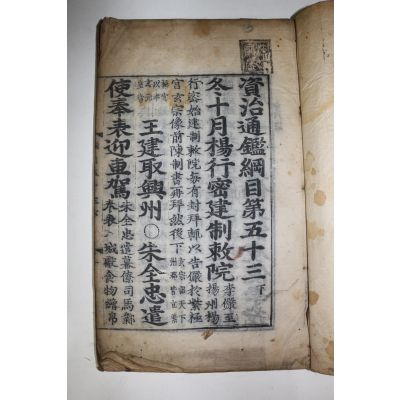 資治通鑑綱目第五十三下
冬十月楊行密建制敕院李儼至揚州楊
行密始建制敕院每有封拜輒以告儼於紫極
宮玄宗像前陳制書再拜然後下
王建取興州○朱全忠遣
使奉表迎車駕朱全忠遣幕僚司馬鄴
奉表入城獻食物繒帛